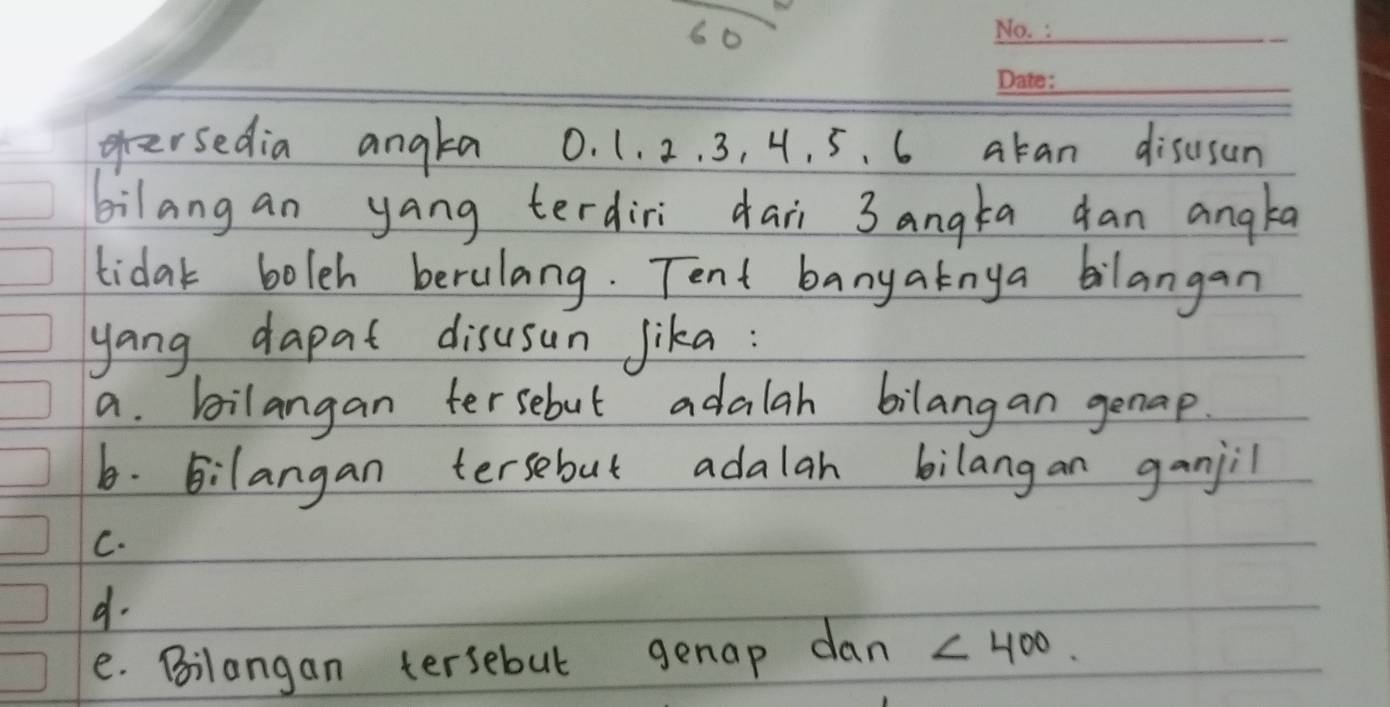 60
No. :
Date:
tersedia angka 0.1.2.3,4.5.6 akan disusun
bilangan yang terdiri dari 3 angka dan angka
tidak boleh berulang. Tent banyaknya bilangan
yang dapat disusun jika :
a. bilangan tersebut adalah bilangan genap.
b. bilangan tersebut adalah bilangan ganjil
c.
d.
e. Bilangan tersebut genap dan < 400.